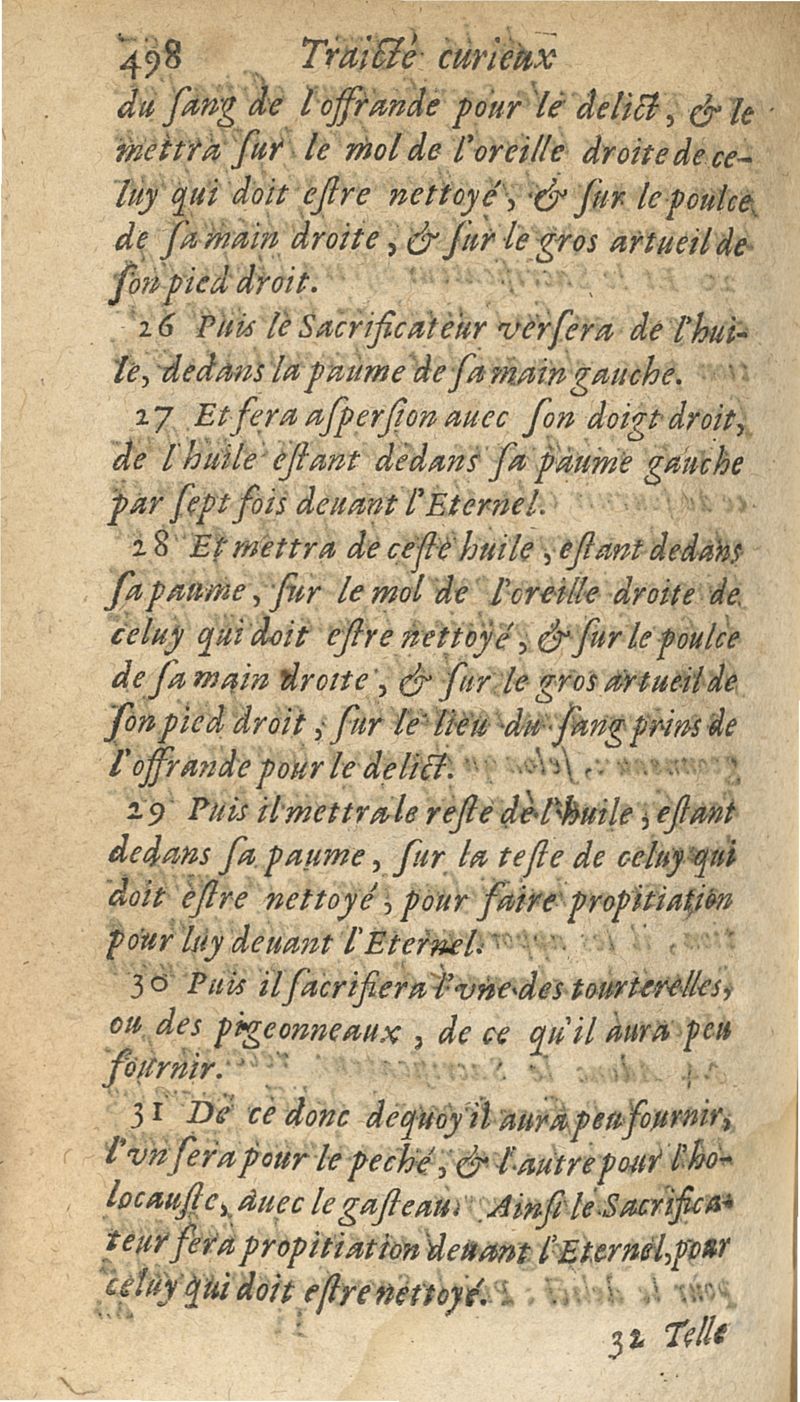 498 Traicté curieux
du ſang de l'offrande pour le delict, & le
mettra ſur le mol de l'oreille droite de ce-
luy qui doit eſtre nettoyé, & ſur le poulce
de ſa main droite, & ſur le gros artueil de
ſon pied droit.
26 Puis le Sacrificateur verſera de l'hui-
le, dedans la paume de ſa main gauche.
27 Et fera aſperſion auec ſon doigt droit,
de l'huile eſtant dedans ſa paume gauche
par ſept fois deuant l'Eternel.
28 Et mettra de ceſte huile, eſtant dedans
ſa paume, ſur le mol de l'oreille droite de
celuy qui doit eſtre nettoyé, & ſur le poulce
de ſa main droite, & ſur le gros artueil de
ſon pied droit, ſur le lieu du ſang prins de
l'offrande pour le delict.
29 Puis il mettra le reſte de l'huile, eſtant
dedans ſa paume, ſur la teſte de celuy qui
doit eſtre nettoyé, pour faire propitiation
pour luy deuant l'Eternel.
30 Puis il ſacrifiera l'vne des tourterelles,
ou des pigeonneaux, de ce qu'il aura peu
fournir.
31 De ce donc dequoy il aura peu fournir,
l'vn ſera pour le peché, & l'autre pour l'ho-
locauſte, auec le gaſteau. Ainſi le Sacrifica-
teur fera propitiation deuant l'Eternel, pour
celuy qui doit eſtre nettoyé.
32 Telle